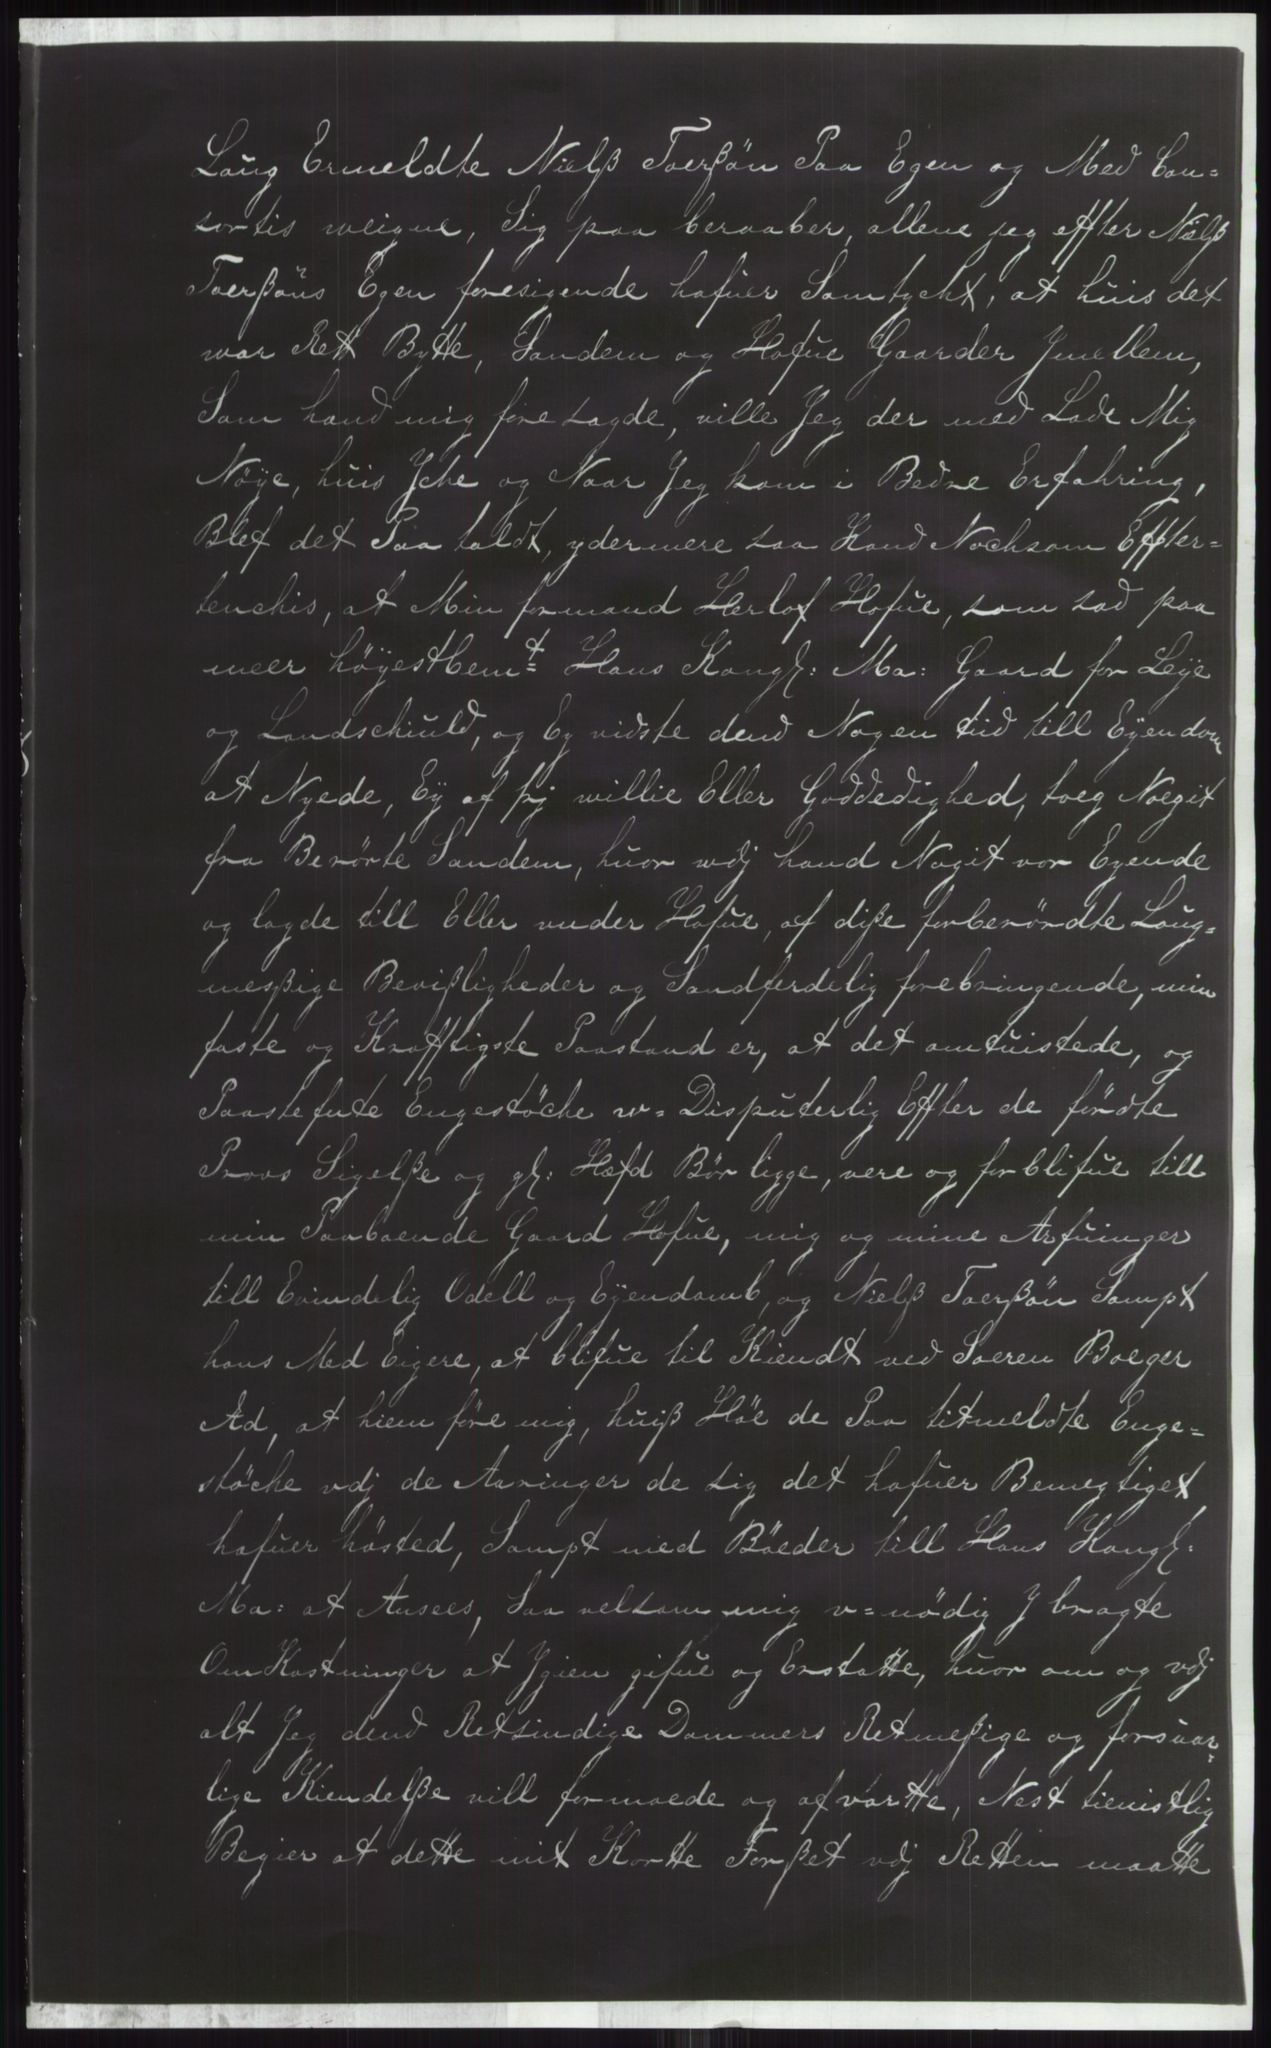 Laug Ermeldte Nielß Toerßön Paa Egen og Med Con=
sortis weigne, Sig paa beraaber, allene jeg effter Nielß
Toerßöns Egen foresigende hafuer Samtycht, at huis det
war Rett Bytte, Sandem og Hofue Gaarder Jmellem,
Som hand mig fore sagde, ville Jeg der med Lade Mig
Nöye, huis Jche og Naar Jeg kom i Bedre Erfahring,
Blef det Paa taldt, ydermere saa Kand Nochsom Effter=
tenchis, at Min formand Herlof Hofue, som sad paa
meer höÿestbemt Hans Kongl: Ma: Gaard for Leÿe
og Landschiuld, og Eÿ vidste dend Nogen tiid till Eÿendom
at Nyede, Eÿ af frj willie Eller Goddedighed, toeg Noegit
fra Berörte Sandem, huor wdj hand Nogit var Eyende
og lagde till Eller under Hofue, af diße forberördte Laug=
meßige Bevißligheder og Sandferdelig forebringende, min
faste og Krafftigste Paastand er, at det omtuistede, og
Paastefnte Engestöche w=Disputerlig Effter de fördte
Provs Sigelße og gl: Hæfd Bör ligge, vere og forblifue till
min Paaboende Gaard Hofue, mig og mine Arfuinger
till Evindelig Odell og Eÿendomb, og Nielß Toerßön Sampt
hans Med Eigere, at blifue til Kiendt ved Soeren Boeger
Ad, at hiem före mig, huiß Höe de Paa titmeldte Enge=
stöche vdj de Aaringer de sig det hafuer Bemegtiget
hafuer hösted, Sampt med Böeder till Hans Kongl:
Ma: at Ansees, Saa velsom mig v=nödig J bragte
OmKostninger at Jgien gifue og Erstatte, huor om og vdj
alt Jeg dend Retsindige Dommers Retmeßige og forsvar=
lige Kiendelße vill formoede og afvartte, Nest tienistlig
Begier at dette mit Kortte Forßet vdj Retten maatte